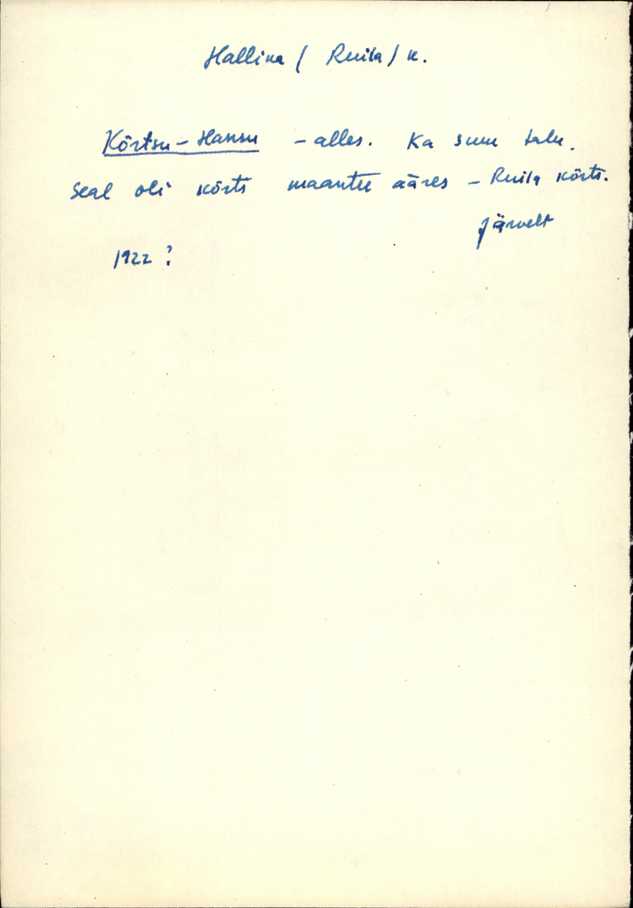 Hallina (Ruila) k.
Kõrtsu-Hansu - alles. Ka suur talu.
Seal oli kõrts maantee ääres - Ruila kõrts.
Järvelt
1922?